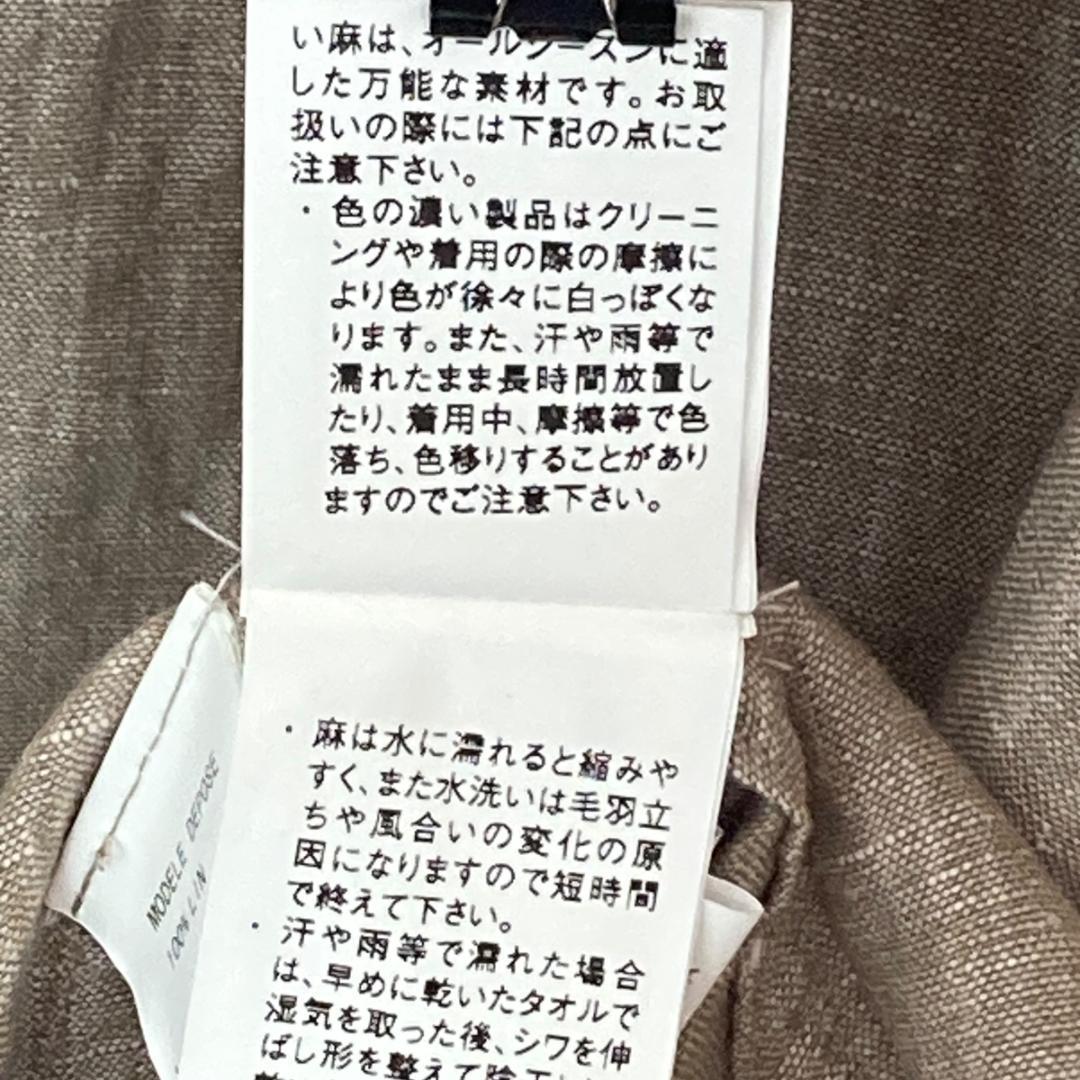 い麻は、オールシーズンに適
した万能な素材です。お取
扱いの際には下記の点にご
注意下さい。
・色の濃い製品はクリーニ
ングや着用の際の摩擦に
より色が徐々に白っぽくな
ります。また、汗や雨等で
濡れたまま長時間放置し
たり、着用中、摩擦等で色
落ち、色移りすることがあり
ますのでご注意下さい。
・麻は水に濡れると縮みや
すく、また水洗いは毛羽立
ちや風合いの変化の原
因になりますので短時間
で終えて下さい。
・汗や雨等で濡れた場合
は、早めに乾いたタオルで
湿気を取った後、シワを伸
ばし形を整えて陰干し
MODELE DEPOSE
100% LIN